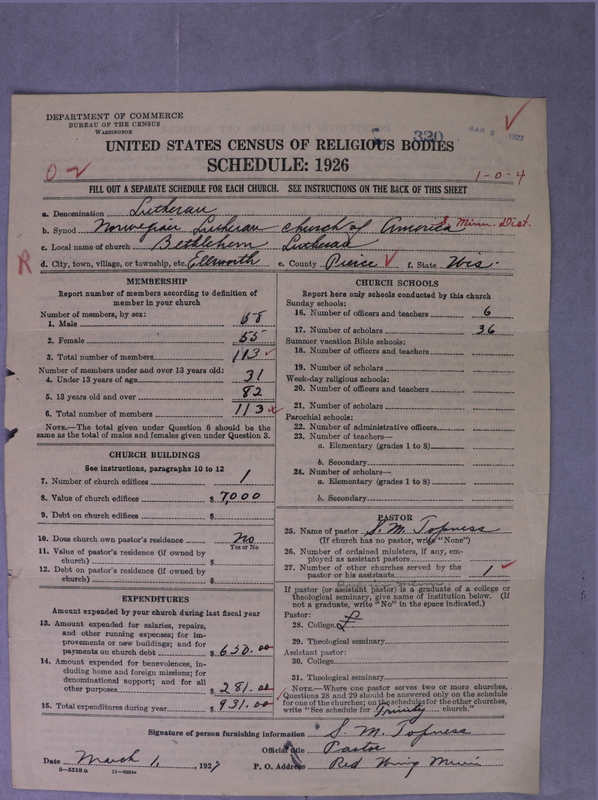 DEPARTMENT OF COMMERCE
BUREAU OF THE CENSUS
WASHINGTON
320
MAR 3 1927
UNITED STATES CENSUS OF RELIGIOUS BODIES
SCHEDULE: 1926
1-0-4
FILL OUT A SEPARATE SCHEDULE FOR EACH CHURCH. SEE INSTRUCTIONS ON THE BACK OF THIS SHEET
a. Denomination Lutheran
b. Synod Norwegian Lutheran church of America Minn. Dist.
c. Local name of church Bethlehem Lutheran
R
d. City, town, village, or township, etc. Ellsworth e. County Pierce f. State Wis.
MEMBERSHIP
Report number of members according to definition of
member in your church
Number of members, by sex:
1. Male 58
2. Female 55
3. Total number of members 113
Number of members under and over 13 years old:
4. Under 13 years of age 31
5. 13 years old and over 82
6. Total number of members 113
NOTE.—The total given under Question 6 should be
same as the total of males and females given under Question 3.
CHURCH BUILDINGS
See instructions, paragraphs 10 to 12
7. Number of church edifices 1
8. Value of church edifices $ 7,000
9. Debt on church edifices $
10. Does church own pastor's residence No
Yes or No
11. Value of pastor's residence (if owned by
church) $
12. Debt on pastor's residence (if owned by
church) $
EXPENDITURES
Amount expended by your church during last fiscal year
13. Amount expended for salaries, repairs,
and other running expenses; for im-
provements or new buildings; and for
payments on church debt $ 650.00
14. Amount expended for benevolences, in-
cluding home and foreign missions; for
denominational support; and for all
other purposes $ 281.00
15. Total expenditures during year $ 931.00
CHURCH SCHOOLS
Report here only schools conducted by this church
Sunday schools:
16. Number of officers and teachers 6
17. Number of scholars 36
Summer vacation Bible schools:
18. Number of officers and teachers
19. Number of scholars
Week-day religious schools:
20. Number of officers and teachers
21. Number of scholars
Parochial schools:
22. Number of administrative officers
23. Number of teachers—
a. Elementary (grades 1 to 8)
b. Secondary
24. Number of scholars—
a. Elementary (grades 1 to 8)
b. Secondary
PASTOR
25. Name of pastor S. M. Topness
(If church has no pastor, write "None")
26. Number of ordained ministers, if any, em-
ployed as assistant pastors
27. Number of other churches served by the
pastor or his assistants 1
If pastor (or assistant pastor) is a graduate of a college or
theological seminary, give name of institution below. (If
not a graduate, write "No" in the space indicated.)
Pastor:
28. College
29. Theological seminary
Assistant pastor:
30. College
31. Theological seminary
NOTE.—Where one pastor serves two or more churches,
Questions 28 and 29 should be answered only on the schedule
for one of the churches; on the schedules for the other churches,
write "See schedule for Trinity church."
Signature of person furnishing information S. M. Topness
Official title Pastor
Date March 1, 1927 P. O. Address Red Wing Minn
8—5318 a